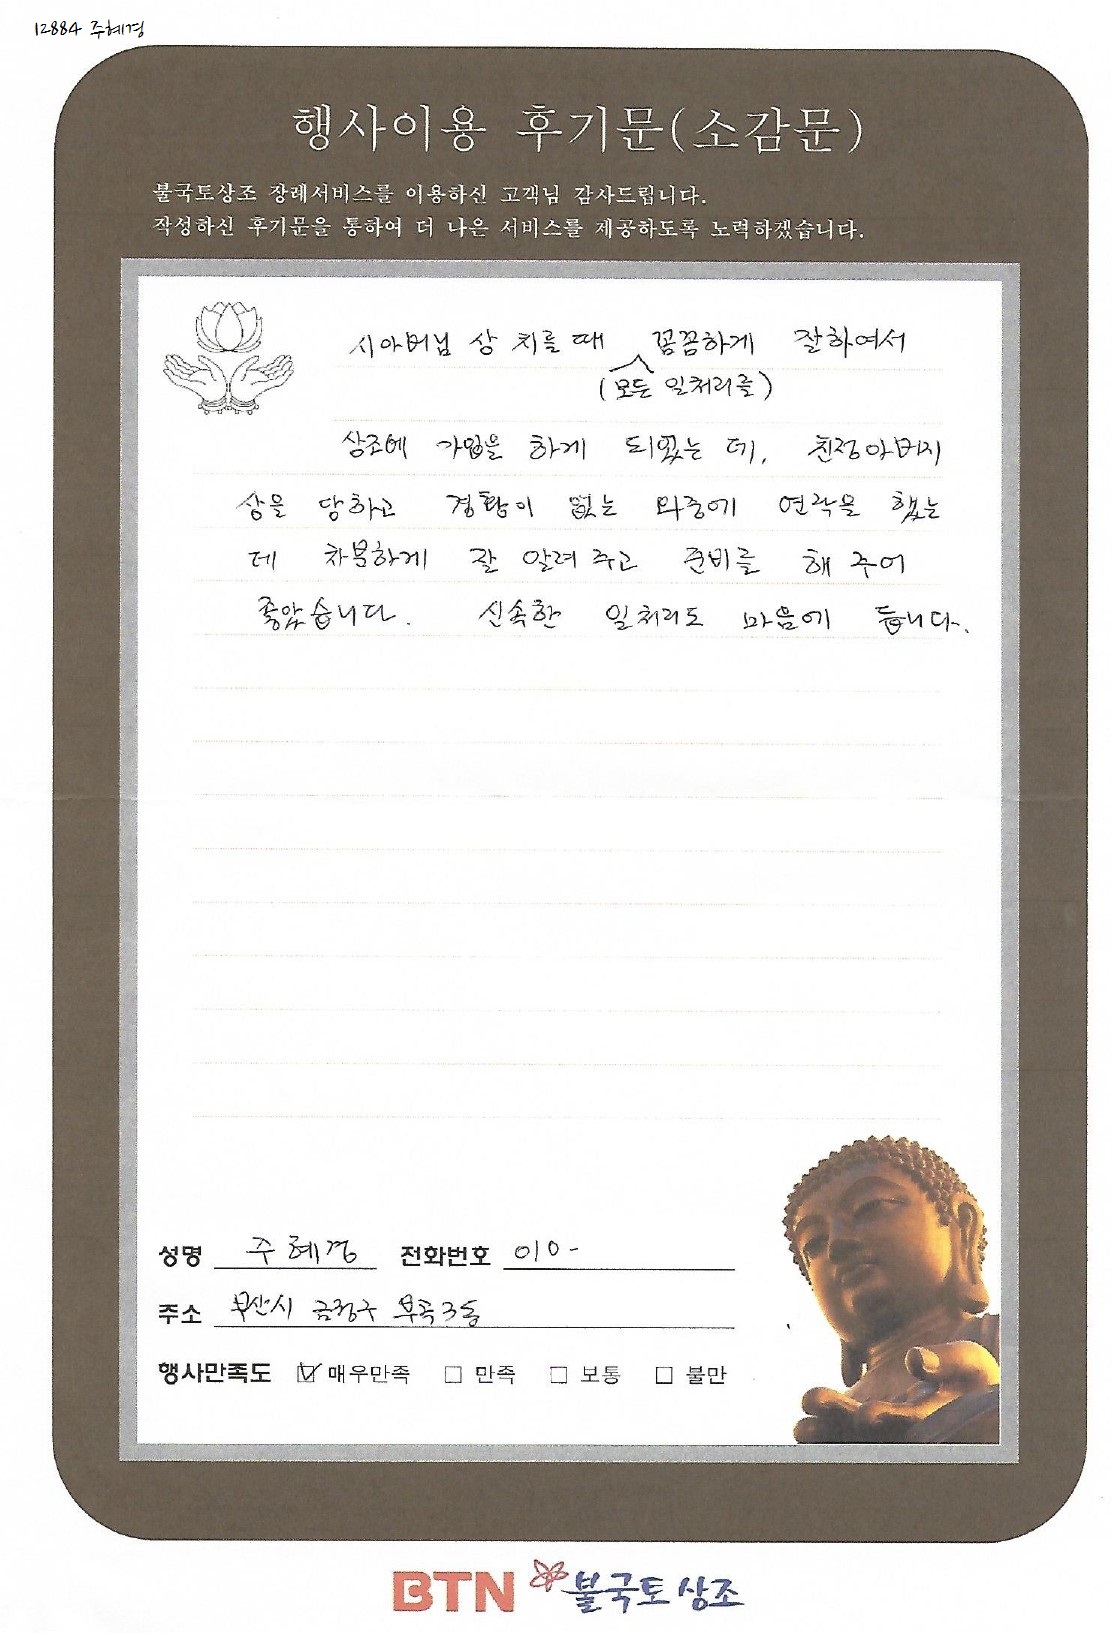 12884 주혜경
행사이용 후기문(소감문)
불국토상조 장례서비스를 이용하신 고객님 감사드립니다.
작성하신 후기문을 통하여 더 나은 서비스를 제공하도록 노력하겠습니다.
시아버님 상 치를 때 꼼꼼하게 잘하여서
(모든 일처리를)
상조에 가입을 하게 되었는 데, 친정아버지
상을 당하고 경황이 없는 와중에 연락을 했는
데 차분하게 잘 알려 주고 준비를 해 주어
좋았습니다. 신속한 일처리도 마음에 듭니다.
성명 주혜경 전화번호 010-
주소 부산시 금정구 부곡3동
행사만족도 ☑ 매우만족 □ 만족 □ 보통 □ 불만
BTN 불국토상조